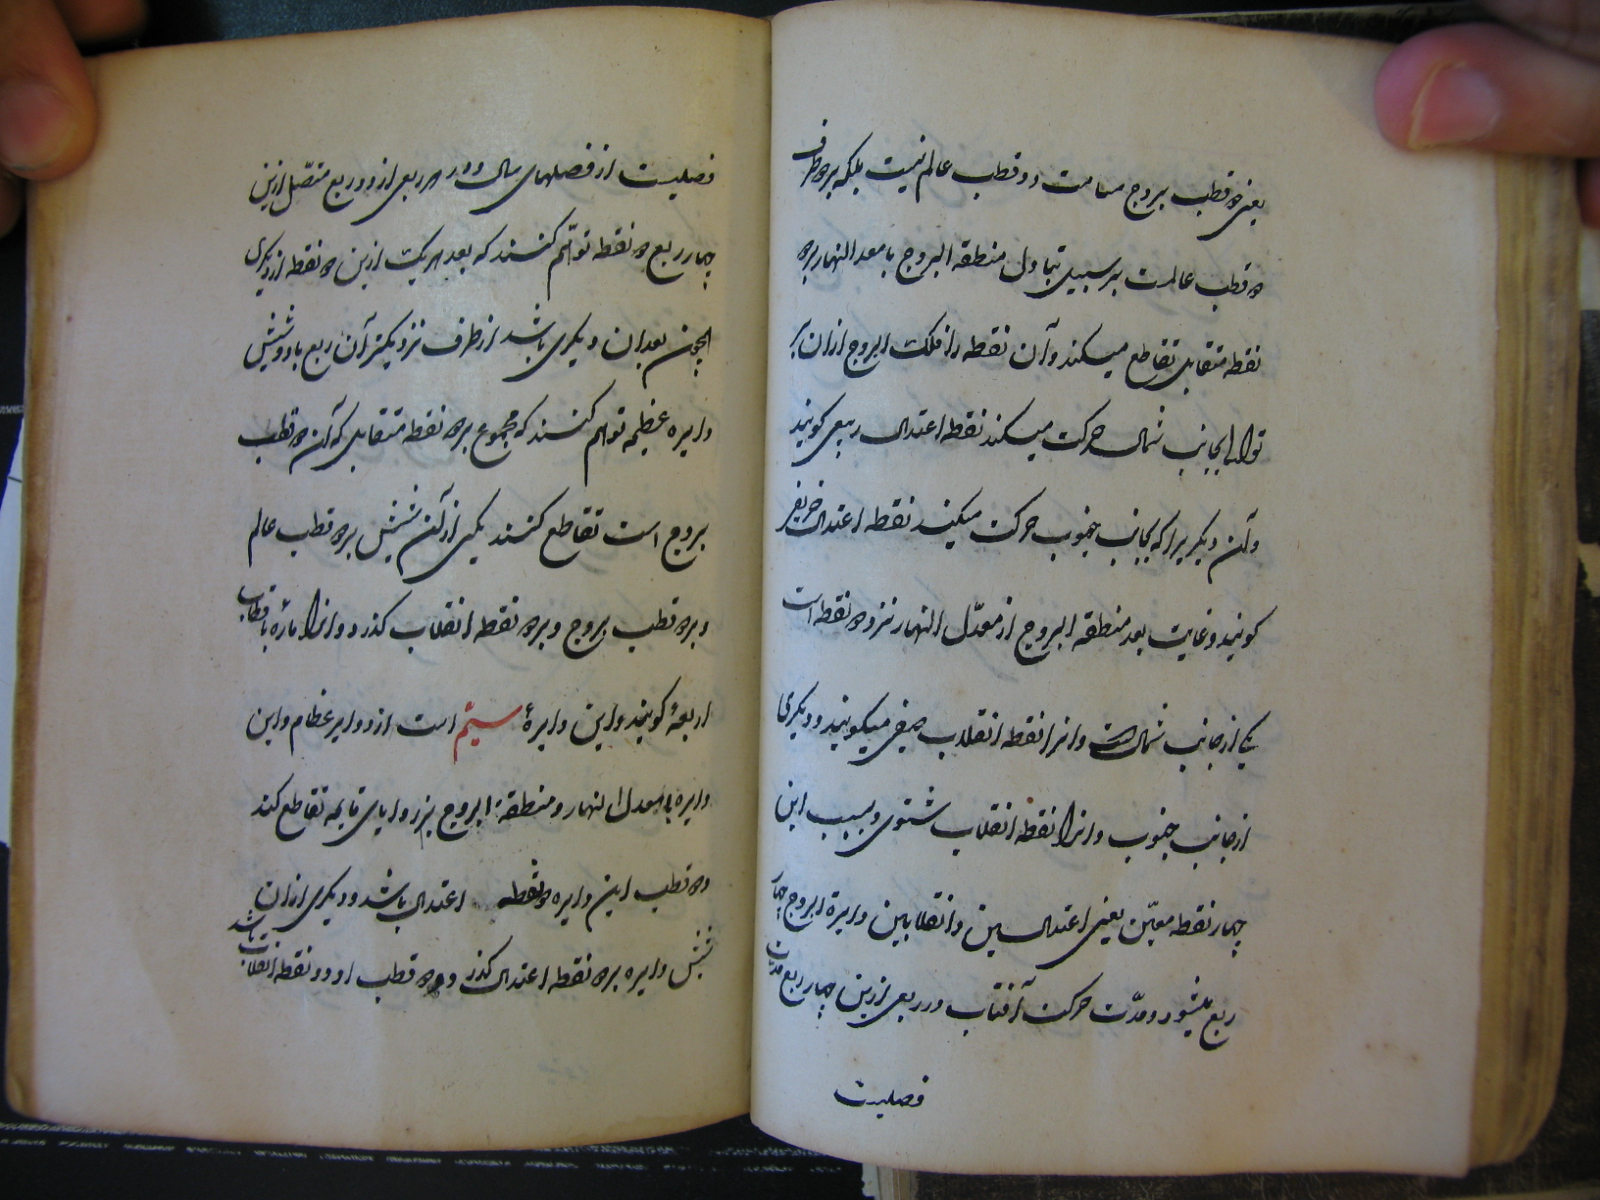 یعنی دو قطب بروج مسامت دو قطب عالم نیست بلکه بر دو طرف
دو قطب عالمست بر سبیل تبادل منطقه البروج با معدل النهار بر دو
نقطه متقابل تقاطع میکند و آن نقطه را از فلک البروج از ان بر
توالی بجانب شمال حرکت میکند نقطه اعتدال ربیعی کویند
و آن دیکر یرا که بجانب جنوب حرکت میکند نقطه اعتدال خریفی
کویند و غایت بعد منطقه البروج از معدّل النهار نزد دو نقطه است
یکی از جانب شمال است و انرا نقطه انقلاب صیفی میکویند و دیکری
از جانب جنوب و انرا نقطه انقلاب شتوی و بسبب این
چهار نقطه معیّن یعنی اعتدالیین و انقلابین دایرة البروج چهار
ربع میشود و مدّت حرکت آفتاب در ربعی ازین چهار ربع مدّت
فصلیست
فصلیست از فصلهای سال و در هر ربعی از دو ربع متّصل ازین
چهار ربع دو نقطه توهّم کنند که بعد هر یک ازین دو نقطه از دیکری
همچون بعد ان دیکری باشد از طرف نزدیکتر آن ربع با و شش
دایره عظیمه توهم کنند که مجموع بر دو نقطه متقابل که آن دو قطب
بروج است تقاطع کنند یکی از آن شش بر دو قطب عالم
و بر دو قطب بروج و بر دو نقطه انقلاب کذرد و انرا مارّه باقطاب
اربعهٔ کویند و این دایرهٔ سیّم است از دوایر عظام و این
دایره با معدل النهار و منطقة البروج بر زوایای قایمه تقاطع کند
و دو قطب این دایره دو نقطه اعتدال باشد و دیکری از ان
شش دایره بر دو نقطه اعتدال کذرد و دو قطب او دو نقطه انقلاب باشد